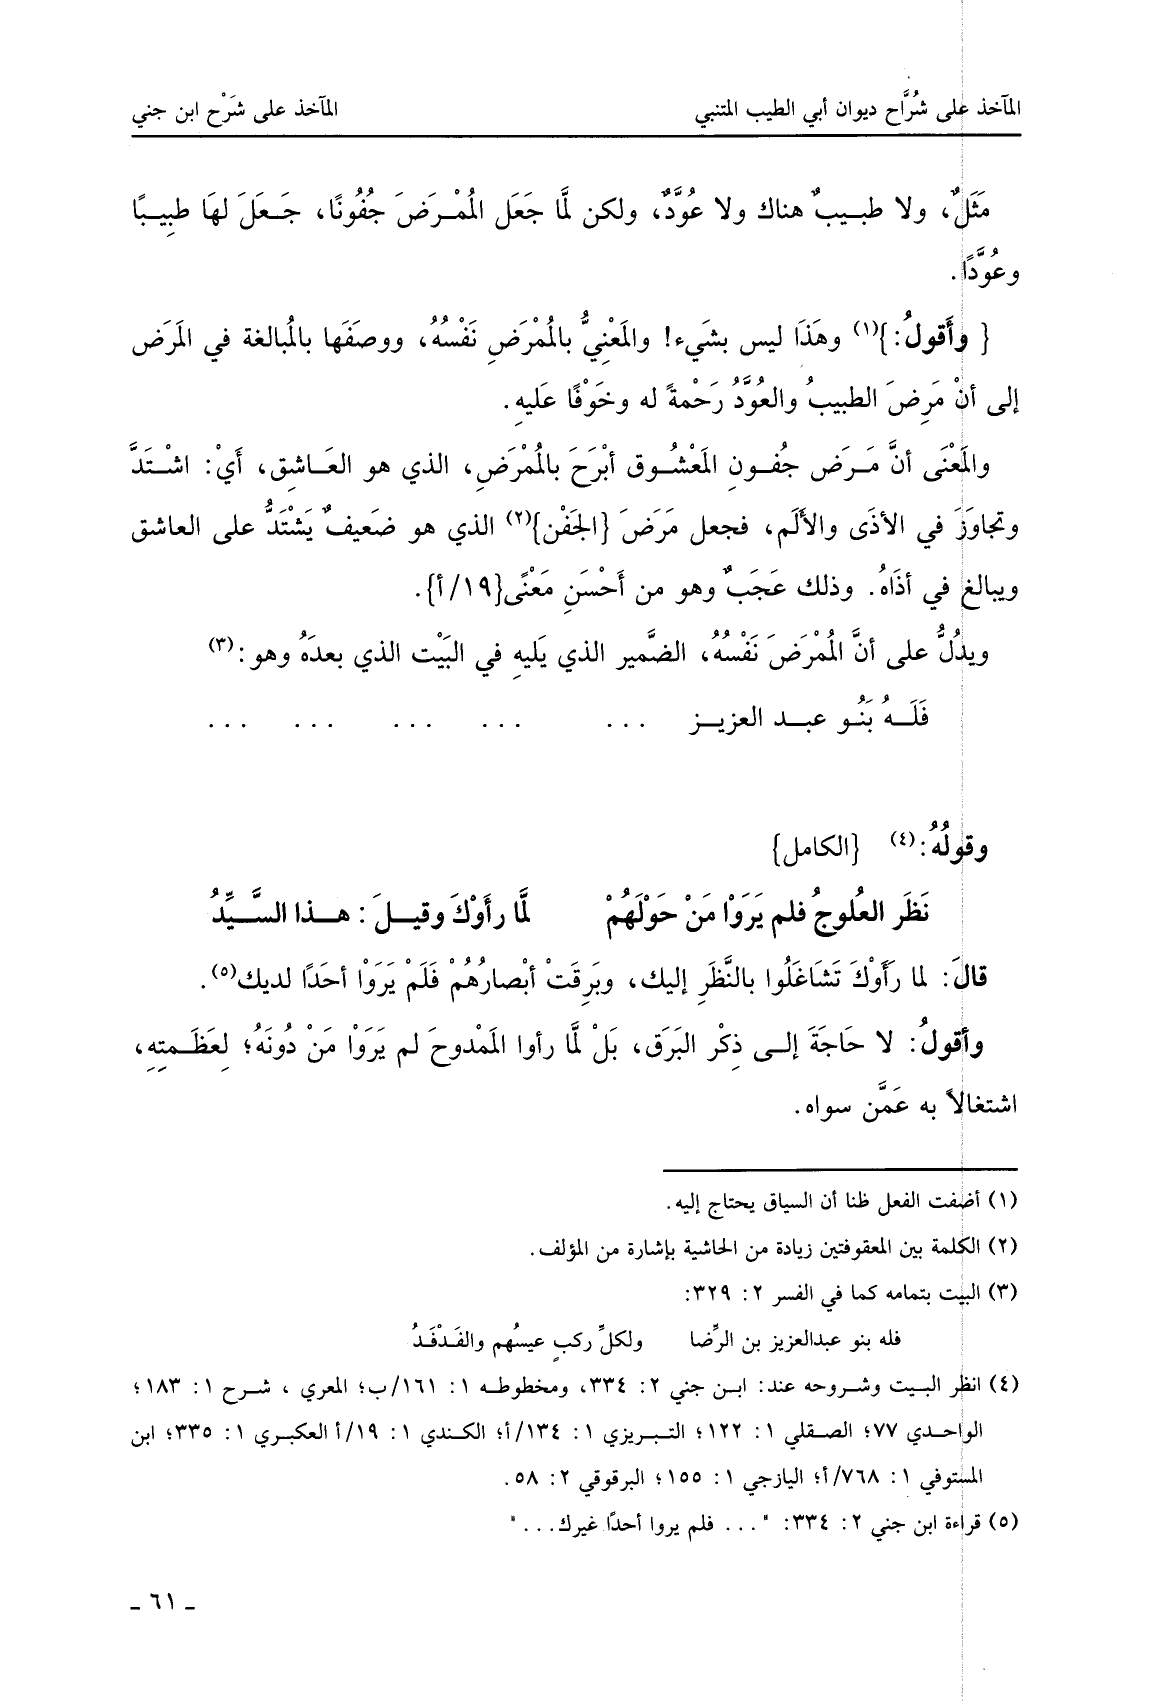 المآخذ على شُرَّاح ديوان أبي الطيب المتنبي المآخذ على شَرْح ابن جني
مَثَلٌ، ولا طبـيبٌ هناك ولا عُوَّدٌ، ولكن لمَّا جَعَل المُمْـرَضَ جُفُونًا، جَـعَلَ لهَا طبِيـبًا
وعُوَّدًا.
{ وأَقولُ:}(١) وهَذَا ليس بشَيء! والمَعْنِيُّ بالمُمْرَضِ نَفْسُهُ، ووصفَهَا بالمُبالغة في المَرَض
إلى أنْ مَرِضَ الطبيبُ والعُوَّدُ رَحْمةً له وخَوْفًا عَليهِ.
والمَعْنَى أنَّ مَـرَض جفُـونِ المَعْشُـوق أبْرَحَ بالمُمْرَضِ، الذي هو العَـاشِق، أَيْ: اشْـتَدَّ
وتجاوَزَ في الأذَى والأَلَم، فجعل مَرَضَ {الجَفْن}(٢) الذي هو ضَعيفٌ يَشْتَدُّ على العاشق
ويبالغ في أذَاهُ. وذلك عَجَبٌ وهو من أَحْسَنِ مَعْنًى{١٩/أ}.
ويدُلُّ على أنَّ المُمْرَضَ نَفْسُهُ، الضَّمير الذي يَليهِ في البَيْت الذي بعدَهُ وهو:(٣)
فَلَـهُ بَنُـو عبـد العزيـز ... ... ... ... ...
وقولُهُ:(٤) {الكامل}
نَظَر العُلوجُ فلم يَرَوْا مَنْ حَوْلَهُمْ لمَّا رأَوْكَ وقيـلَ : هـذا السَّـيِّدُ
قالَ: لما رَأَوْكَ تَشَاغَلُوا بالنَّظَرِ إليك، وبَرِقَتْ أبْصارُهُمْ فَلَمْ يَرَوْا أحَدًا لديك(٥).
وأقولُ: لا حَاجَةَ إلـى ذِكْر البَرَق، بَلْ لمَّا رأوا المَمْدوحَ لم يَرَوْا مَنْ دُونَهُ؛ لِعظَـمتِهِ،
اشتغالاً به عَمَّن سواه.
(١) أضفت الفعل ظنا أن السياق يحتاج إليه.
(٢) الكلمة بين المعقوفتين زيادة من الحاشية بإشارة من المؤلف.
(٣) البيت بتمامه كما في الفسر ٢: ٣٢٩:
فله بنو عبدالعزيز بن الرِّضا ولكلِّ ركبٍ عيسُهم والفَـدْفَـدُ
(٤) انظر البـيت وشـروحه عند: ابـن جني ٢: ٣٣٤، ومخطوطـه ١: ١٦١/ب؛ المعري ، شـرح ١: ١٨٣؛
الواحـدي ٧٧؛ الصـقلي ١: ١٢٢؛ التـبـريزي ١: ١٣٤/أ؛ الكـندي ١: ١٩/أ العكبـري ١: ٣٣٥؛ ابن
المستوفي ١: ٧٦٨/أ؛ اليازجي ١: ١٥٥؛ البرقوقي ٢: ٥٨.
(٥) قراءة ابن جني ٢: ٣٣٤: "... فلم يروا أحدًا غيرك..."
ـ ٦١ ـ